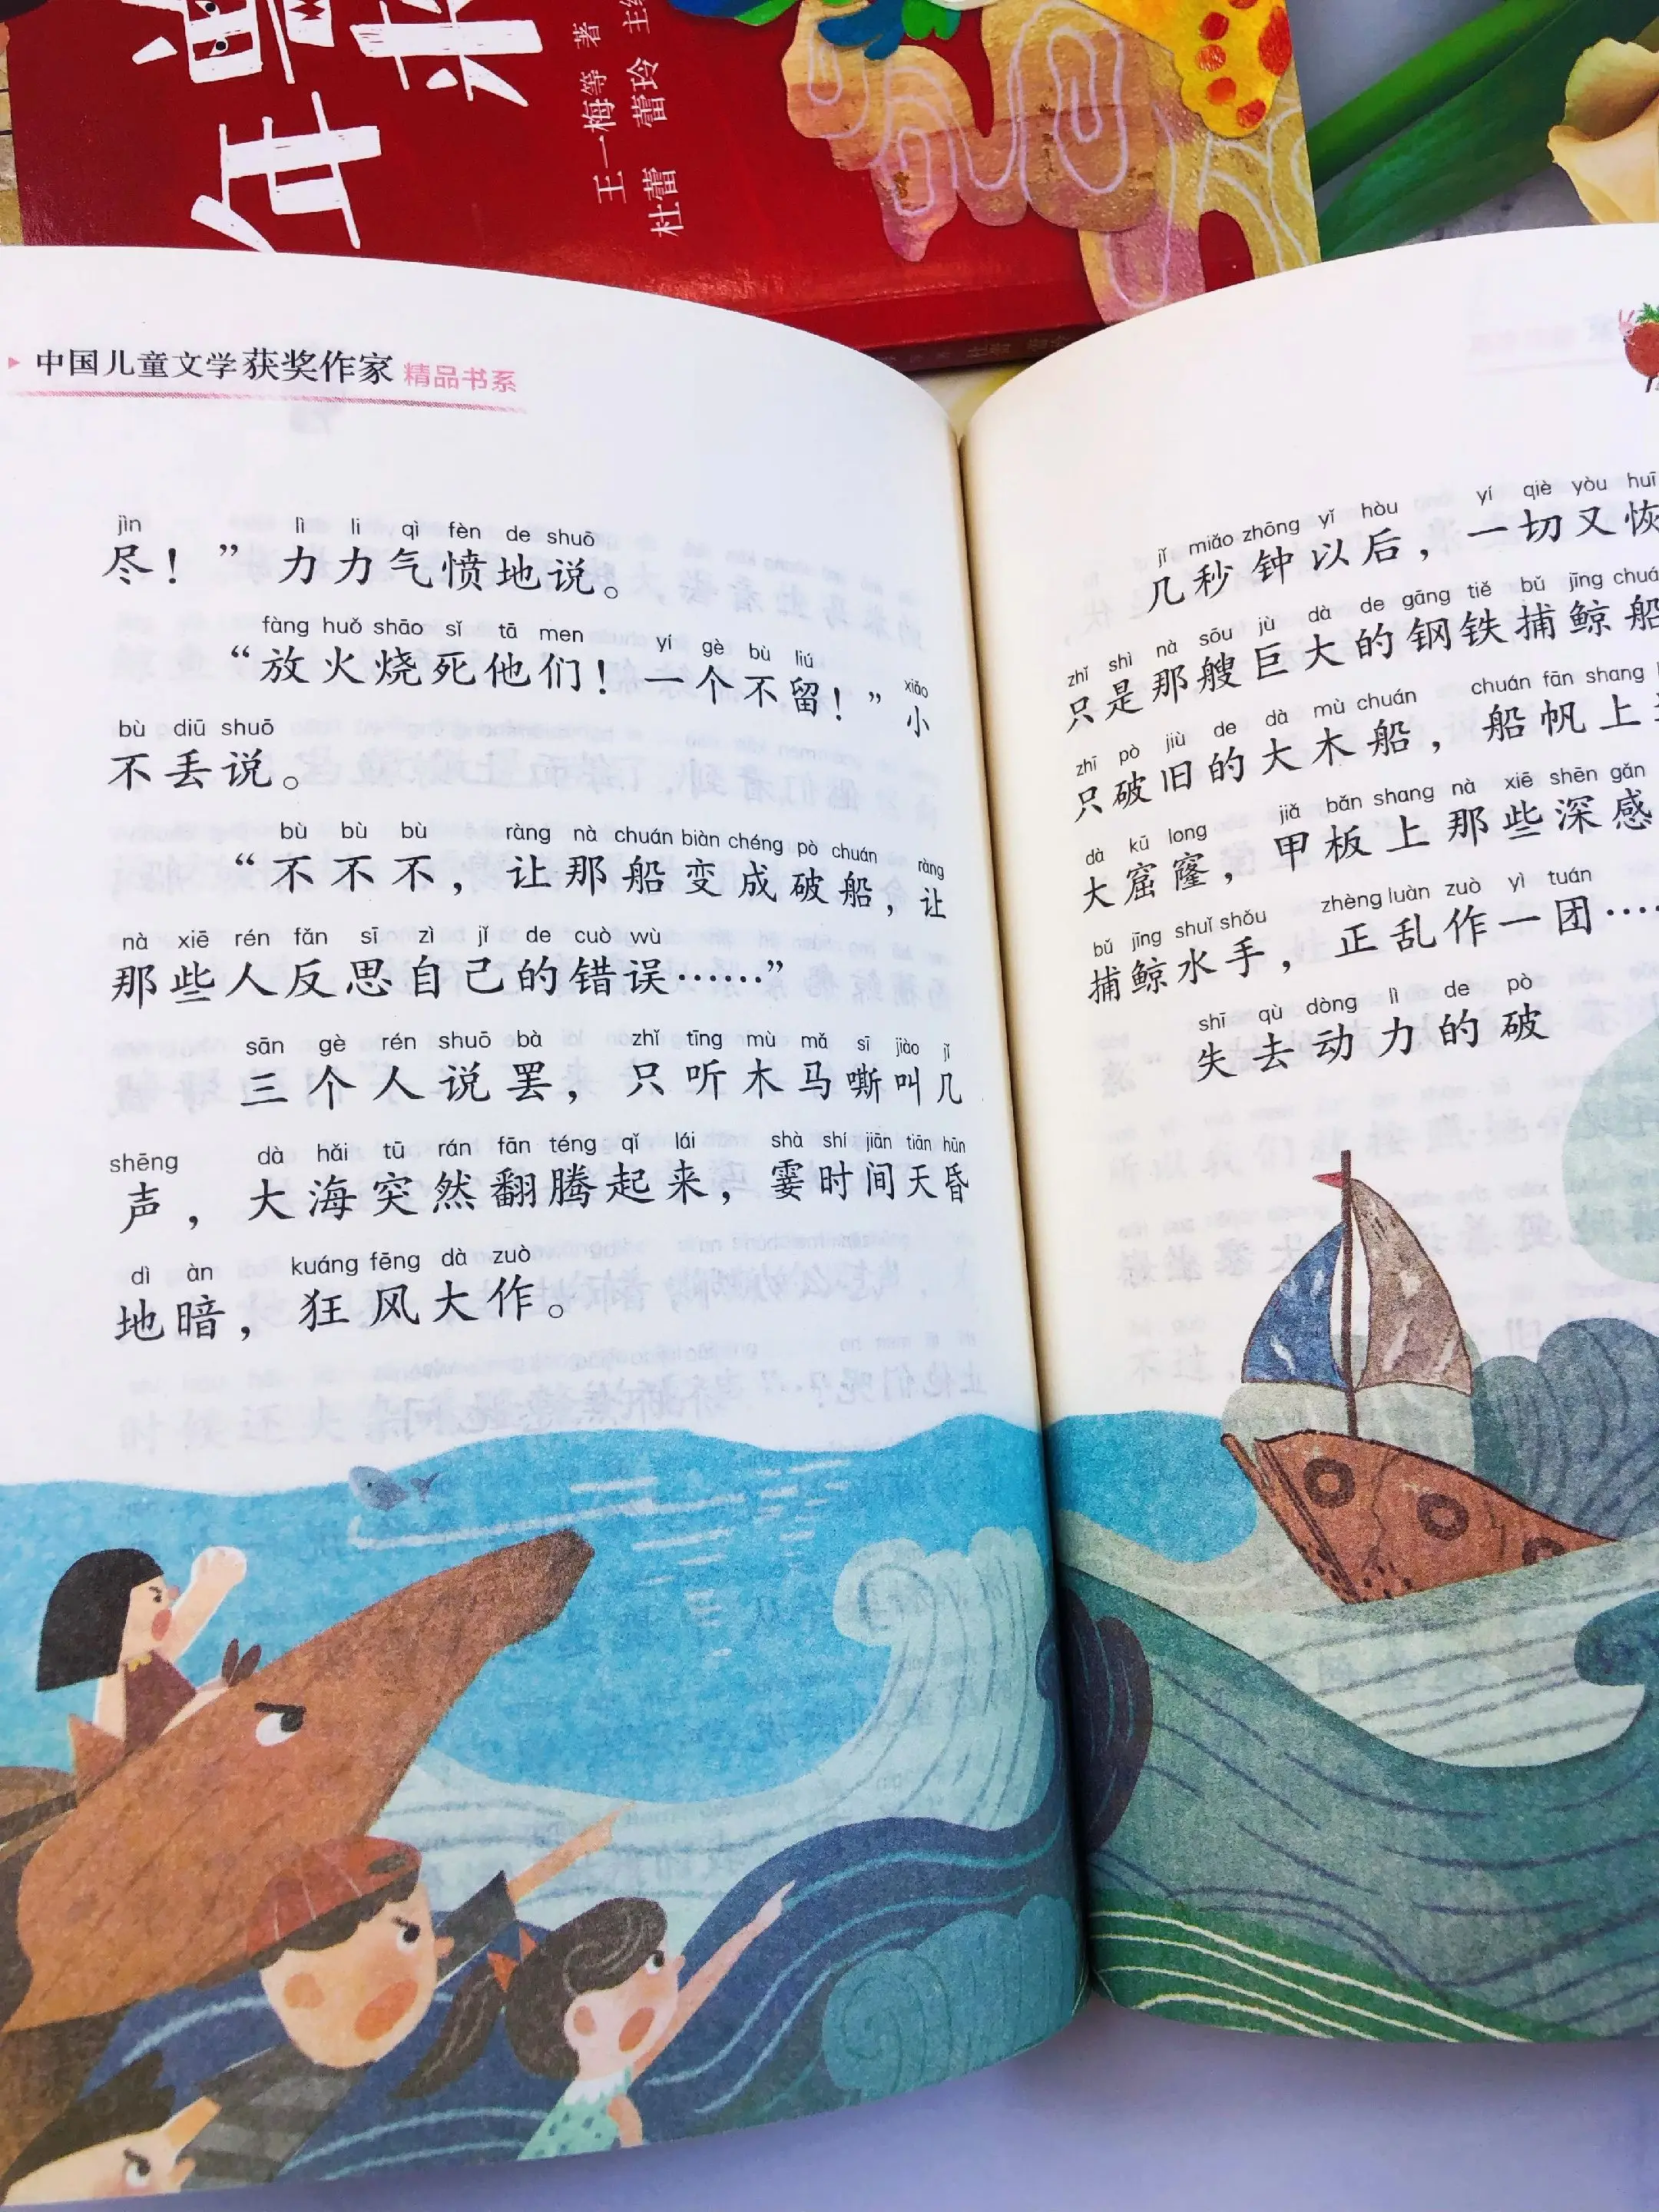 年
王一梅等 著
杜蕾 蕾玲 主
中国儿童文学获奖作家 精品书系
jìn lì li qì fèn de shuō
尽！”力力气愤地说。
fàng huǒ shāo sǐ tā men yí gè bù liú xiǎo
“放火烧死他们！一个不留！”小
bù diū shuō
不丢说。
bù bù bù ràng nà chuán biàn chéng pò chuán ràng
“不不不，让那船变成破船，让
nà xiē rén fǎn sī zì jǐ de cuò wù
那些人反思自己的错误……”
sān gè rén shuō bà zhǐ tīng mù mǎ sī jiào jǐ
三个人说罢，只听木马嘶叫几
shēng dà hǎi tū rán fān téng qǐ lái shà shí jiān tiān hūn
声，大海突然翻腾起来，霎时间天昏
dì àn kuáng fēng dà zuò
地暗，狂风大作。
jǐ miǎo zhōng yǐ hòu yí qiè yòu huī
几秒钟以后，一切又恢
zhǐ shì nà sōu jù dà de gāng tiě bǔ jīng chuá
只是那艘巨大的钢铁捕鲸船
zhī pò jiù de dà mù chuán chuán fān shang
只破旧的大木船，船帆上
dà kū long jiǎ bǎn shang nà xiē shēn gǎn
大窟窿，甲板上那些深感
bǔ jīng shuǐ shǒu zhèng luàn zuò yì tuán
捕鲸水手，正乱作一团…
shī qù dòng lì de pò
失去动力的破